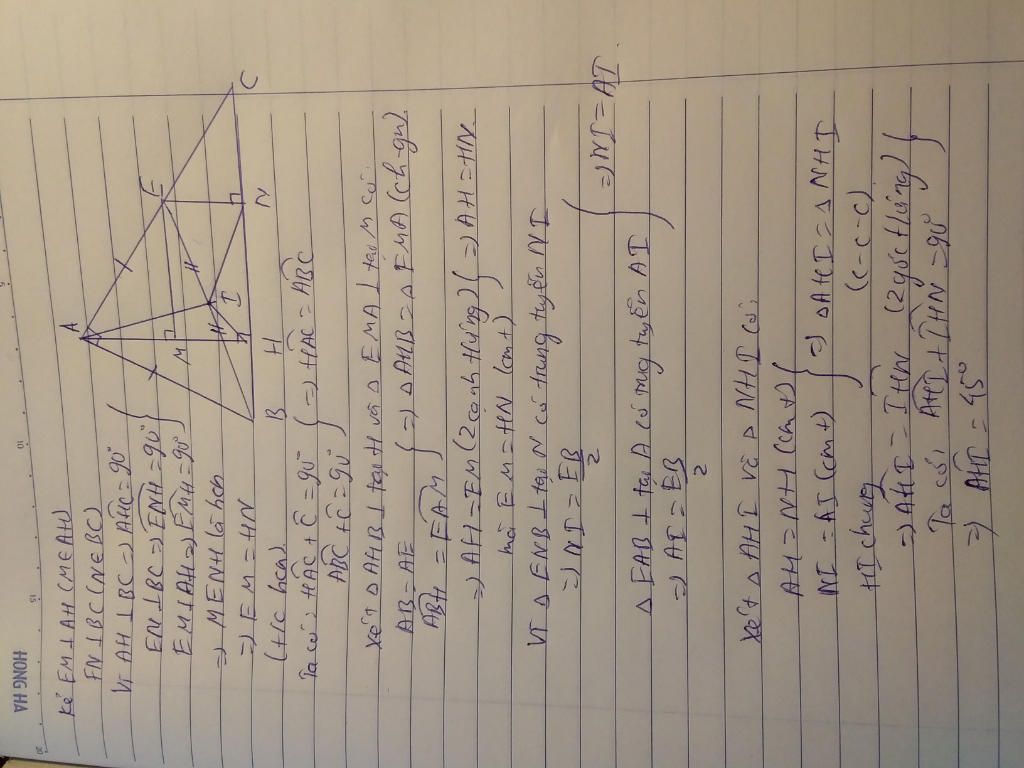 HONG HA
Kẻ EM⊥AH (M∈AH)
EN⊥BC (N∈BC)
Vì AH⊥BC ⇒ \widehat{AHC} = 90°
EN⊥BC ⇒ \widehat{ENH} = 90°
EM⊥AH ⇒ \widehat{EMH} = 90°
⇒ MENH là hcn
⇒ EM = HN
(t/c hcn)
A
E
M
H
I
B
H
N
C
Ta có: \widehat{HAC} + \widehat{C} = 90°
\widehat{ABC} + \widehat{C} = 90°
⇒ \widehat{HAC} = \widehat{ABC}
Xét △AHB ⊥ tại H và △EMA ⊥ tại M có:
AB = AE
\widehat{ABH} = \widehat{EAM}
⇒ △AHB = △EMA (ch-gn)
⇒ AH = EM (2 cạnh t/ứng)
mà EM = HN (cmt)
⇒ AH = HN
Vì △ENB ⊥ tại N có trung tuyến NI
⇒ NI = \frac{EB}{2}
△EAB ⊥ tại A có trung tuyến AI
⇒ AI = \frac{EB}{2}
⇒ NI = AI
Xét △AHI và △NHI có:
AH = NH (cmt)
NI = AI (cmt)
HI chung
⇒ △AHI = △NHI
(c-c-c)
⇒ \widehat{AHI} = \widehat{IHN} (2 góc t/ứng)
Ta có: \widehat{AHI} + \widehat{IHN} = 90°
⇒ \widehat{AHI} = 45°